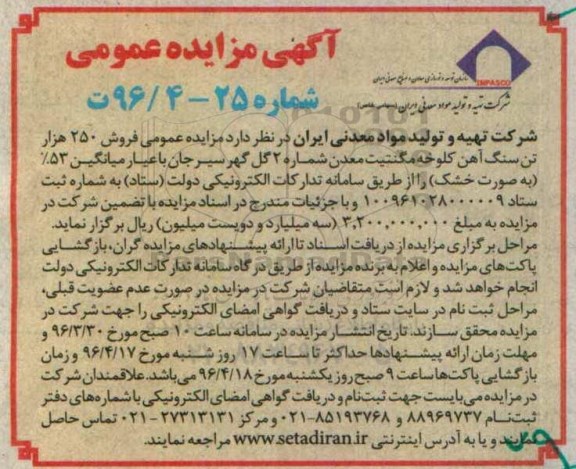 آگهی مزایده عمومی
شماره ۲۵ - ۴ / ۹۶ت
IMPASCO
سازمان توسعه و نوسازی معادن و صنایع معدنی ایران
شرکت تهیه و تولید مواد معدنی ایران (سهامی خاص)
شرکت تهیه و تولید مواد معدنی ایران در نظر دارد مزایده عمومی فروش ۲۵۰ هزار
تن سنگ آهن کلوخه مگنتیت معدن شماره ۲ گل گهر سیرجان با عیار میانگین ۵۳٪
(به صورت خشک) را از طریق سامانه تدارکات الکترونیکی دولت (ستاد) به شماره ثبت
ستاد ۱۰۰۹۶۱۰۲۸۰۰۰۰۰۹ و با جزئیات مندرج در اسناد مزایده با تضمین شرکت در
مزایده به مبلغ ۳,۲۰۰,۰۰۰,۰۰۰ (سه میلیارد و دویست میلیون) ریال برگزار نماید.
مراحل برگزاری مزایده از دریافت اسناد تا ارائه پیشنهادهای مزایده گران، بازگشایی
پاکت‌های مزایده و اعلام به برنده مزایده از طریق درگاه سامانه تدارکات الکترونیکی دولت
انجام خواهد شد و لازم است متقاضیان شرکت در مزایده در صورت عدم عضویت قبلی،
مراحل ثبت نام در سایت ستاد و دریافت گواهی امضای الکترونیکی را جهت شرکت در
مزایده محقق سازند. تاریخ انتشار مزایده در سامانه ساعت ۱۰ صبح مورخ ۹۶/۳/۳۰ و
مهلت زمان ارائه پیشنهادها حداکثر تا ساعت ۱۷ روز شنبه مورخ ۹۶/۴/۱۷ و زمان
بازگشایی پاکت‌ها ساعت ۹ صبح روز یکشنبه مورخ ۹۶/۴/۱۸ می‌باشد. علاقمندان شرکت
در مزایده می‌بایست جهت ثبت‌نام و دریافت گواهی امضای الکترونیکی با شماره‌های دفتر
ثبت‌نام ۸۸۹۶۹۷۳۷ و ۸۵۱۹۳۷۶۸-۰۲۱ و مرکز ۲۷۳۱۳۱۳۱-۰۲۱ تماس حاصل
نمایند و یا به آدرس اینترنتی www.setadiran.ir مراجعه نمایند.